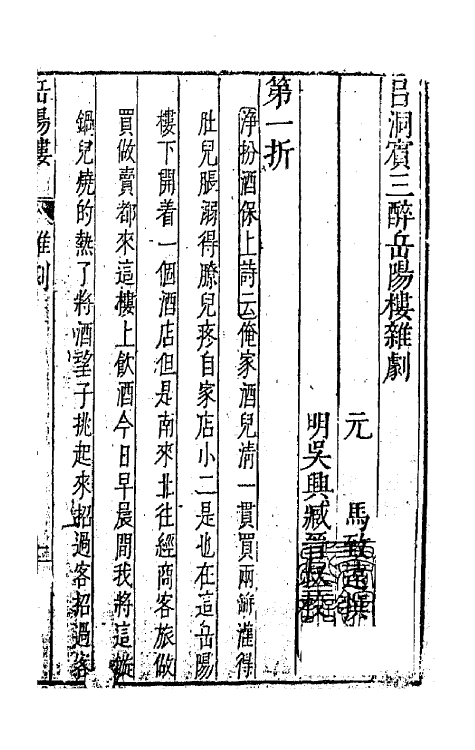 呂洞賓三醉岳陽樓雜劇
元　馬致遠撰
明吳興臧晉叔校
第一折
淨扮酒保上詩云俺家酒兒清一貫買兩缾灌得
肚兒脹溺得膫兒疼自家店小二是也在這岳陽
樓下開着一個酒店但是南來北往經商客旅做
買做賣都來這樓上飲酒今日早晨間我將這鏇
鍋兒燒的熱了將酒望子挑起來招過客招過客
岳陽樓　雜劇